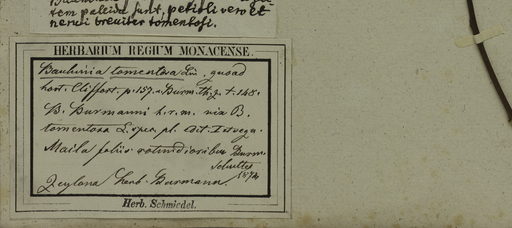 tem pallida sunt, petioli vero et
nervi breviter tomentosi.
HERBARIUM REGIUM MONACENSE.
Bauhinia tomentosa Lin. quoad
hort. Cliffort. p. 157. Burm. th. z. t. 18.
B. Burmanni h. r. m. non B.
tomentosa L. spec. pl. edit. I et
Maila foliis rotundioribus Burm.
Schultes
1874
Zeylona herb. Burmann.
Herb. Schmiedel.